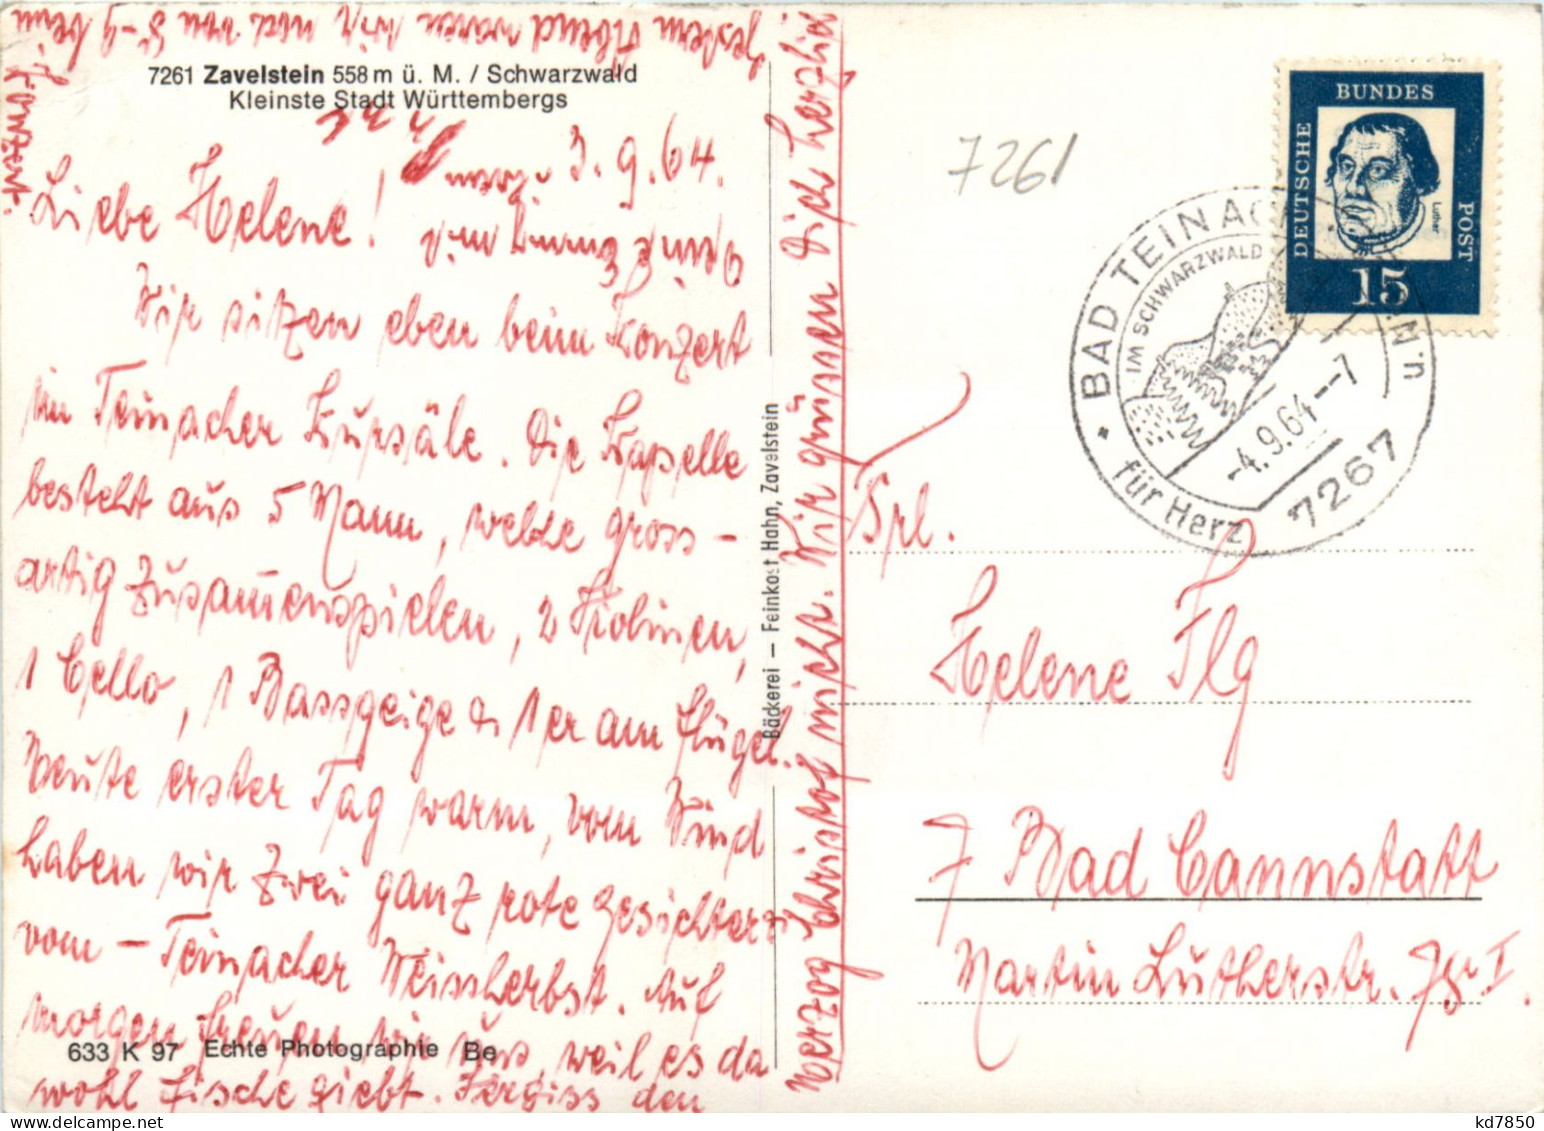 7261 Zavelstein 558 m ü. M. / Schwarzwald
Kleinste Stadt Württembergs
3.9.64.
Liebe Helene!
Wir sitzen eben beim Konzert
im Teinacher Kursäle. Die Kapelle
besteht aus 5 Mann, welche gross-
artig zusammenspielen, 2 Violinen,
1 Cello, 1 Bassgeige & 1er am Flügel.
Heute erster Tag warm, vom Wind
haben wir zwei ganz rote Gesichter &
vom - Teinacher Weissherbst. Auf
morgen freuen wir uns, weil es da
wohl Fische giebt. Vergiss den
Herzog Christof nicht. Wir grüssen Dich herzlich
Gestern Abend waren wir von 8-9 beim
Konzert.
633 K 97 Echte Photographie Be
Bäckerei – Feinkost Hahn, Zavelstein
7261
DEUTSCHE
BUNDES
POST
Luther
15
BAD TEINACH
IM SCHWARZWALD
-4.9.64--7
7267
für Herz
N'n
Frl.
Helene Flg
7 Bad Cannstatt
Martin Lutherstr.
kd7850